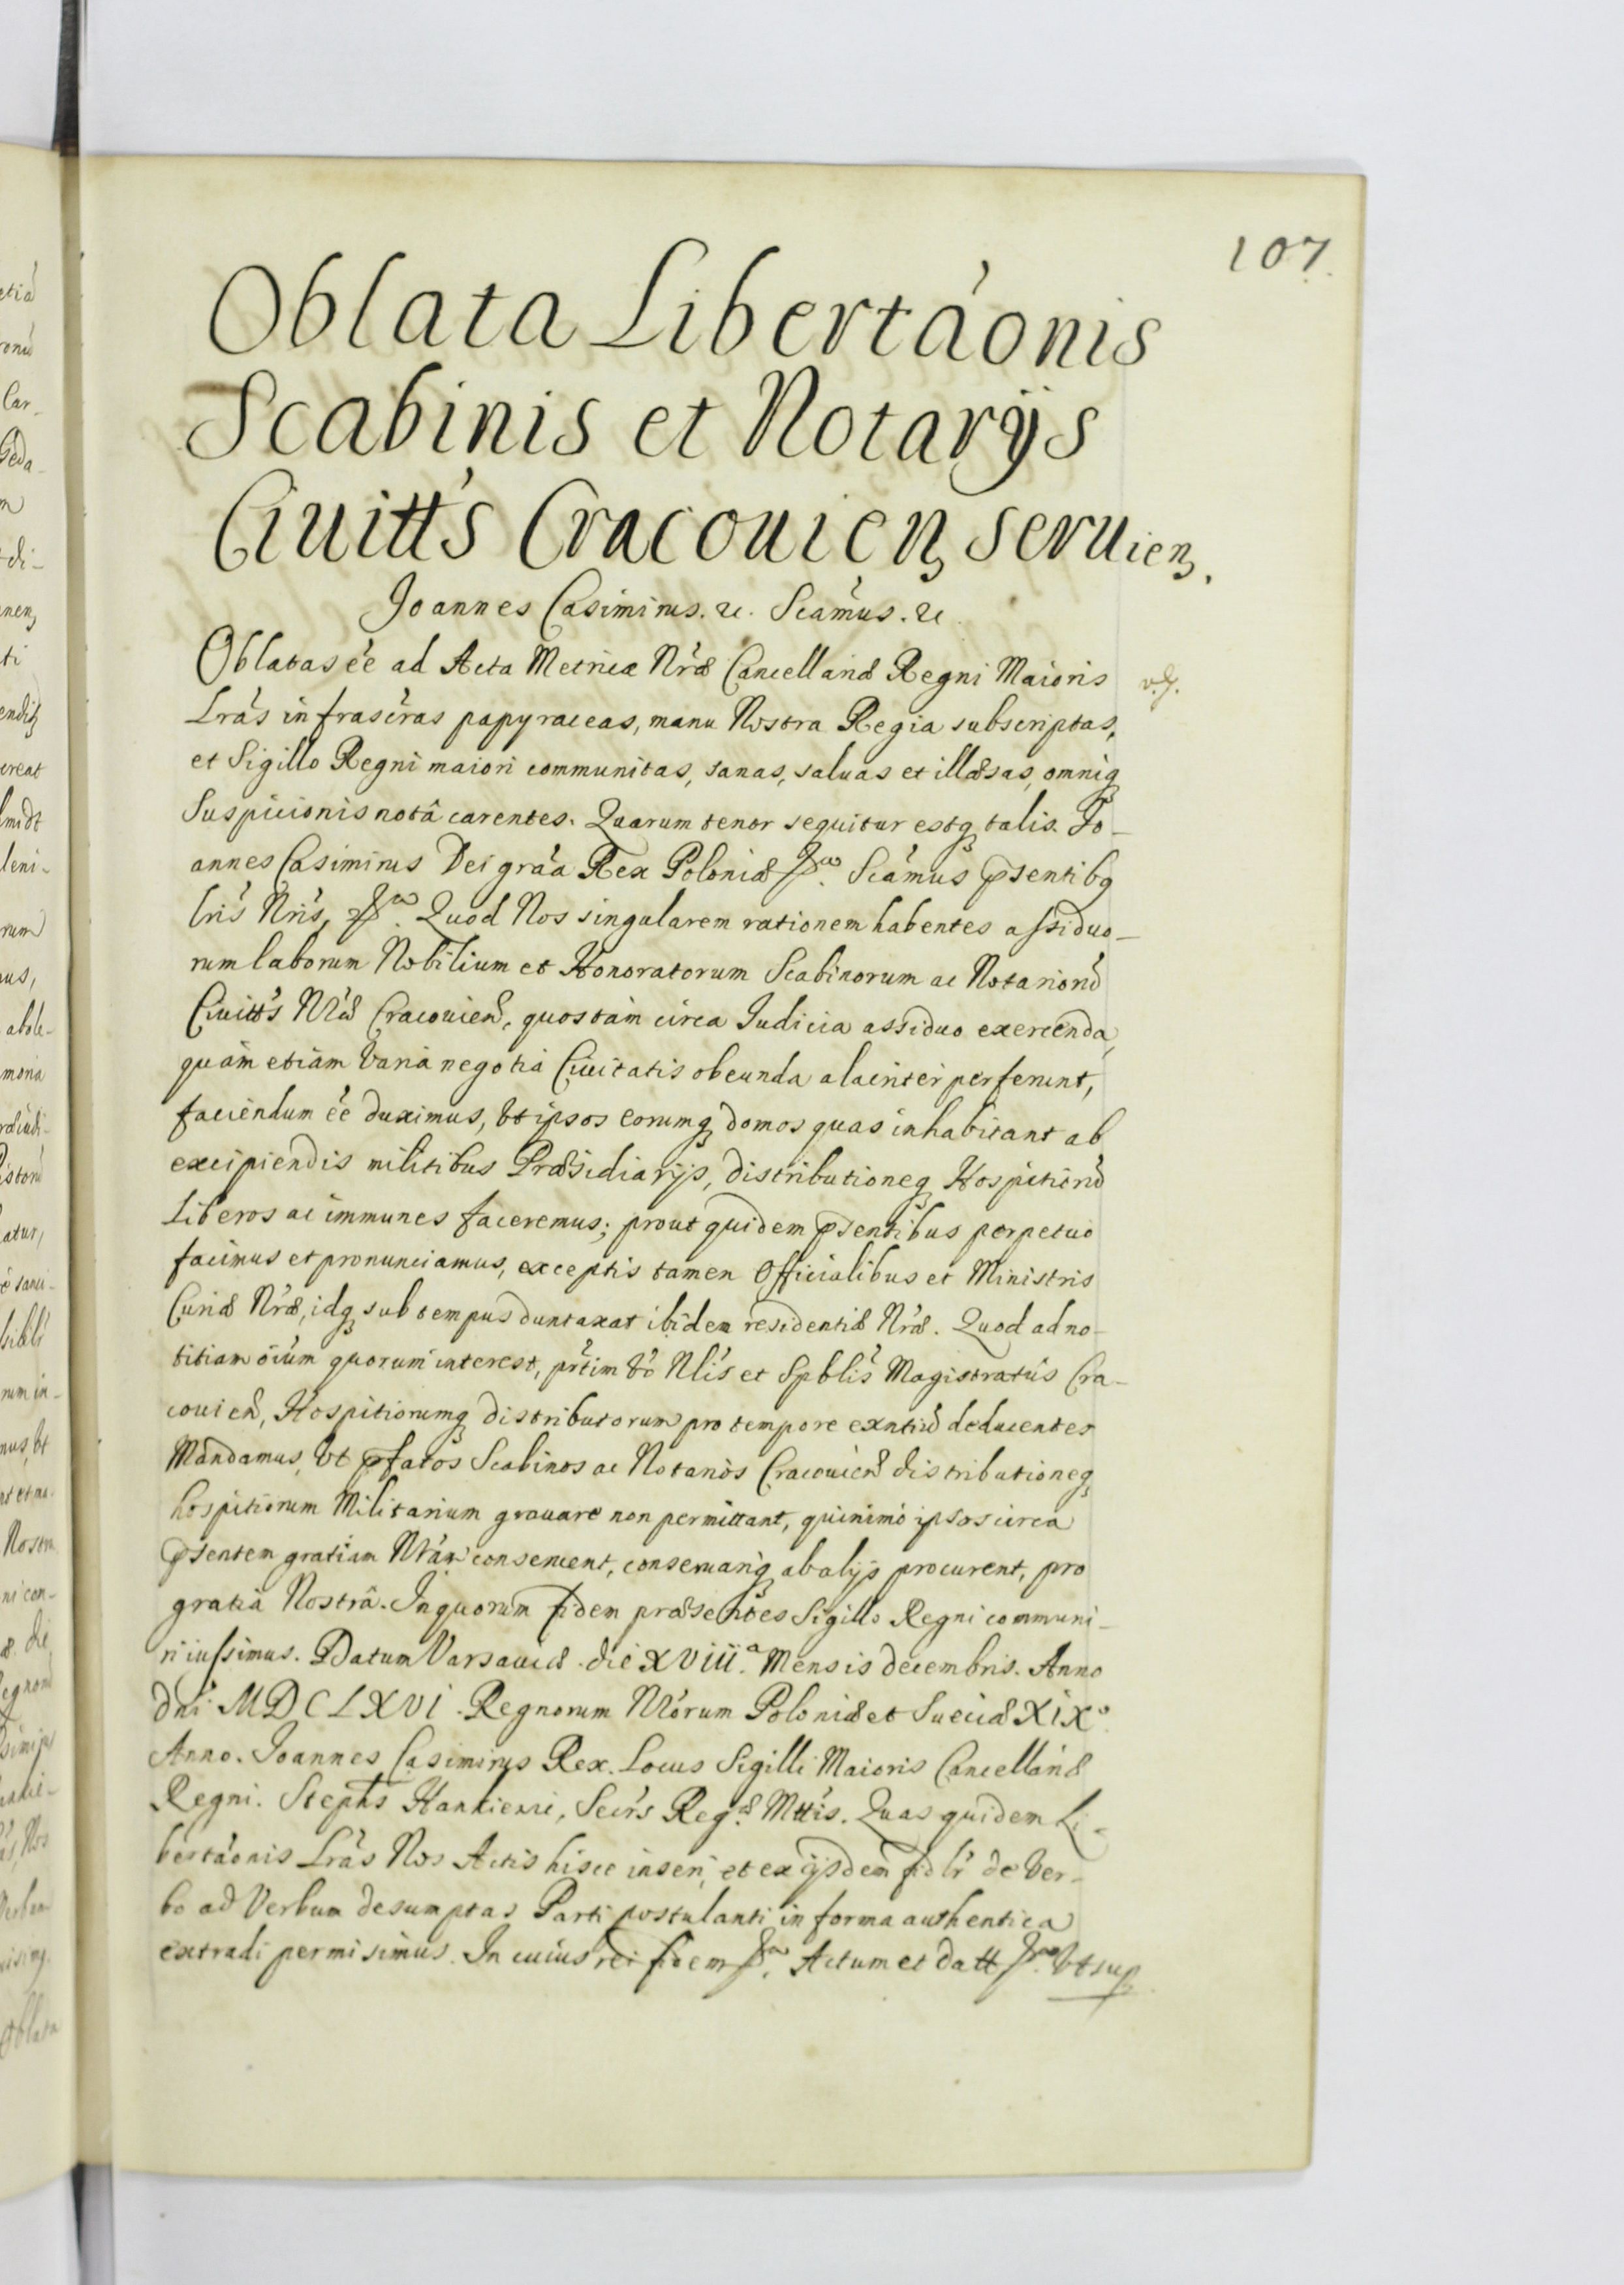 107.
Oblata Libertáonis
Scabinis et Notarijs
Ciuitt's Cracouienȝ seruienȝ.
Joannes Casimirus. &c. Scámus. &c
Oblatas ée ad Acta Metricæ Nræ Cancellariæ Regni Maioris
v.g.
Lrás infrascras papyraceas, manu Nostra Regia subscriptas,
et Sigillo Regni maiori communitas, sanas, saluas et illæsas, omniq́
Suspicionis notâ carentes. Quarum tenor sequitur estq́ talis. Jo-
annes Casimirus Dei gráa Rex Poloniæ &ca. Scámus pſentibq
lris Nris, &ca. Quod Nos singularem rationem habentes aſsiduo-
rum laborum Nobilium et Honoratorum Scabinorum ac Notariorũ
Ciuitt's Nræ Cracouien, quos tàm circa Iudicia assiduo exercenda,
quàm etiàm varia negotia Ciuitatis obeunda alacriter perferunt,
faciendum ée duximus, vt ipsos eorumq́ domos quas inhabitant ab
excipiendis militibus Præsidiarijs, distributioneq́ Hospitiorũ
Liberos ac immunes faceremus; prout quidem pſentibus perpetuo
facimus et pronunciamus, exceptis tamen Officialibus et Ministris
Curiæ Nræ, idq́ sub tempus duntaxat ibidem residentiæ Nræ. Quod ad no-
titiam óium quorum interest, prtim vo Nlis et Spblis Magistratûs Cra-
couien, Hospitiorumq́ distributorum pro tempore exntiũ deducentes
Mandamus, vt pfatos Scabinos ac Notarios Cracouien distributioneq́
hospitiorum Militarium grauare non permittant, quinimò ipsos circa
pſentem gratiam Nrám conseruent, conseruariq́ ab alijs procurent, pro
gratia Nostrâ. In quorum fidem præsentes Sigillo Regni communi-
ri iuſsimus. Datum Varsauiæ die XVIII.a Mensis decembris. Anno
dni MDCLXVI. Regnorum Nrórum Poloniæ et Sueciæ XIXo.
Anno. Joannes Casimirus Rex. Locus Sigilli Maioris Cancellariæ
Regni. Stephs Hankiewi, Secrs Reg.æ Mttis. Quas quidem Li-
bertáonis Lrás Nos Actis hisce inseri, et ex ijsdem fidlr de Ver-
bo ad Verbum desumptas Parti postulanti in forma authentica
extradi permisimus. In cuius rei fidem &ca. Actum et datt &ca. vt sup